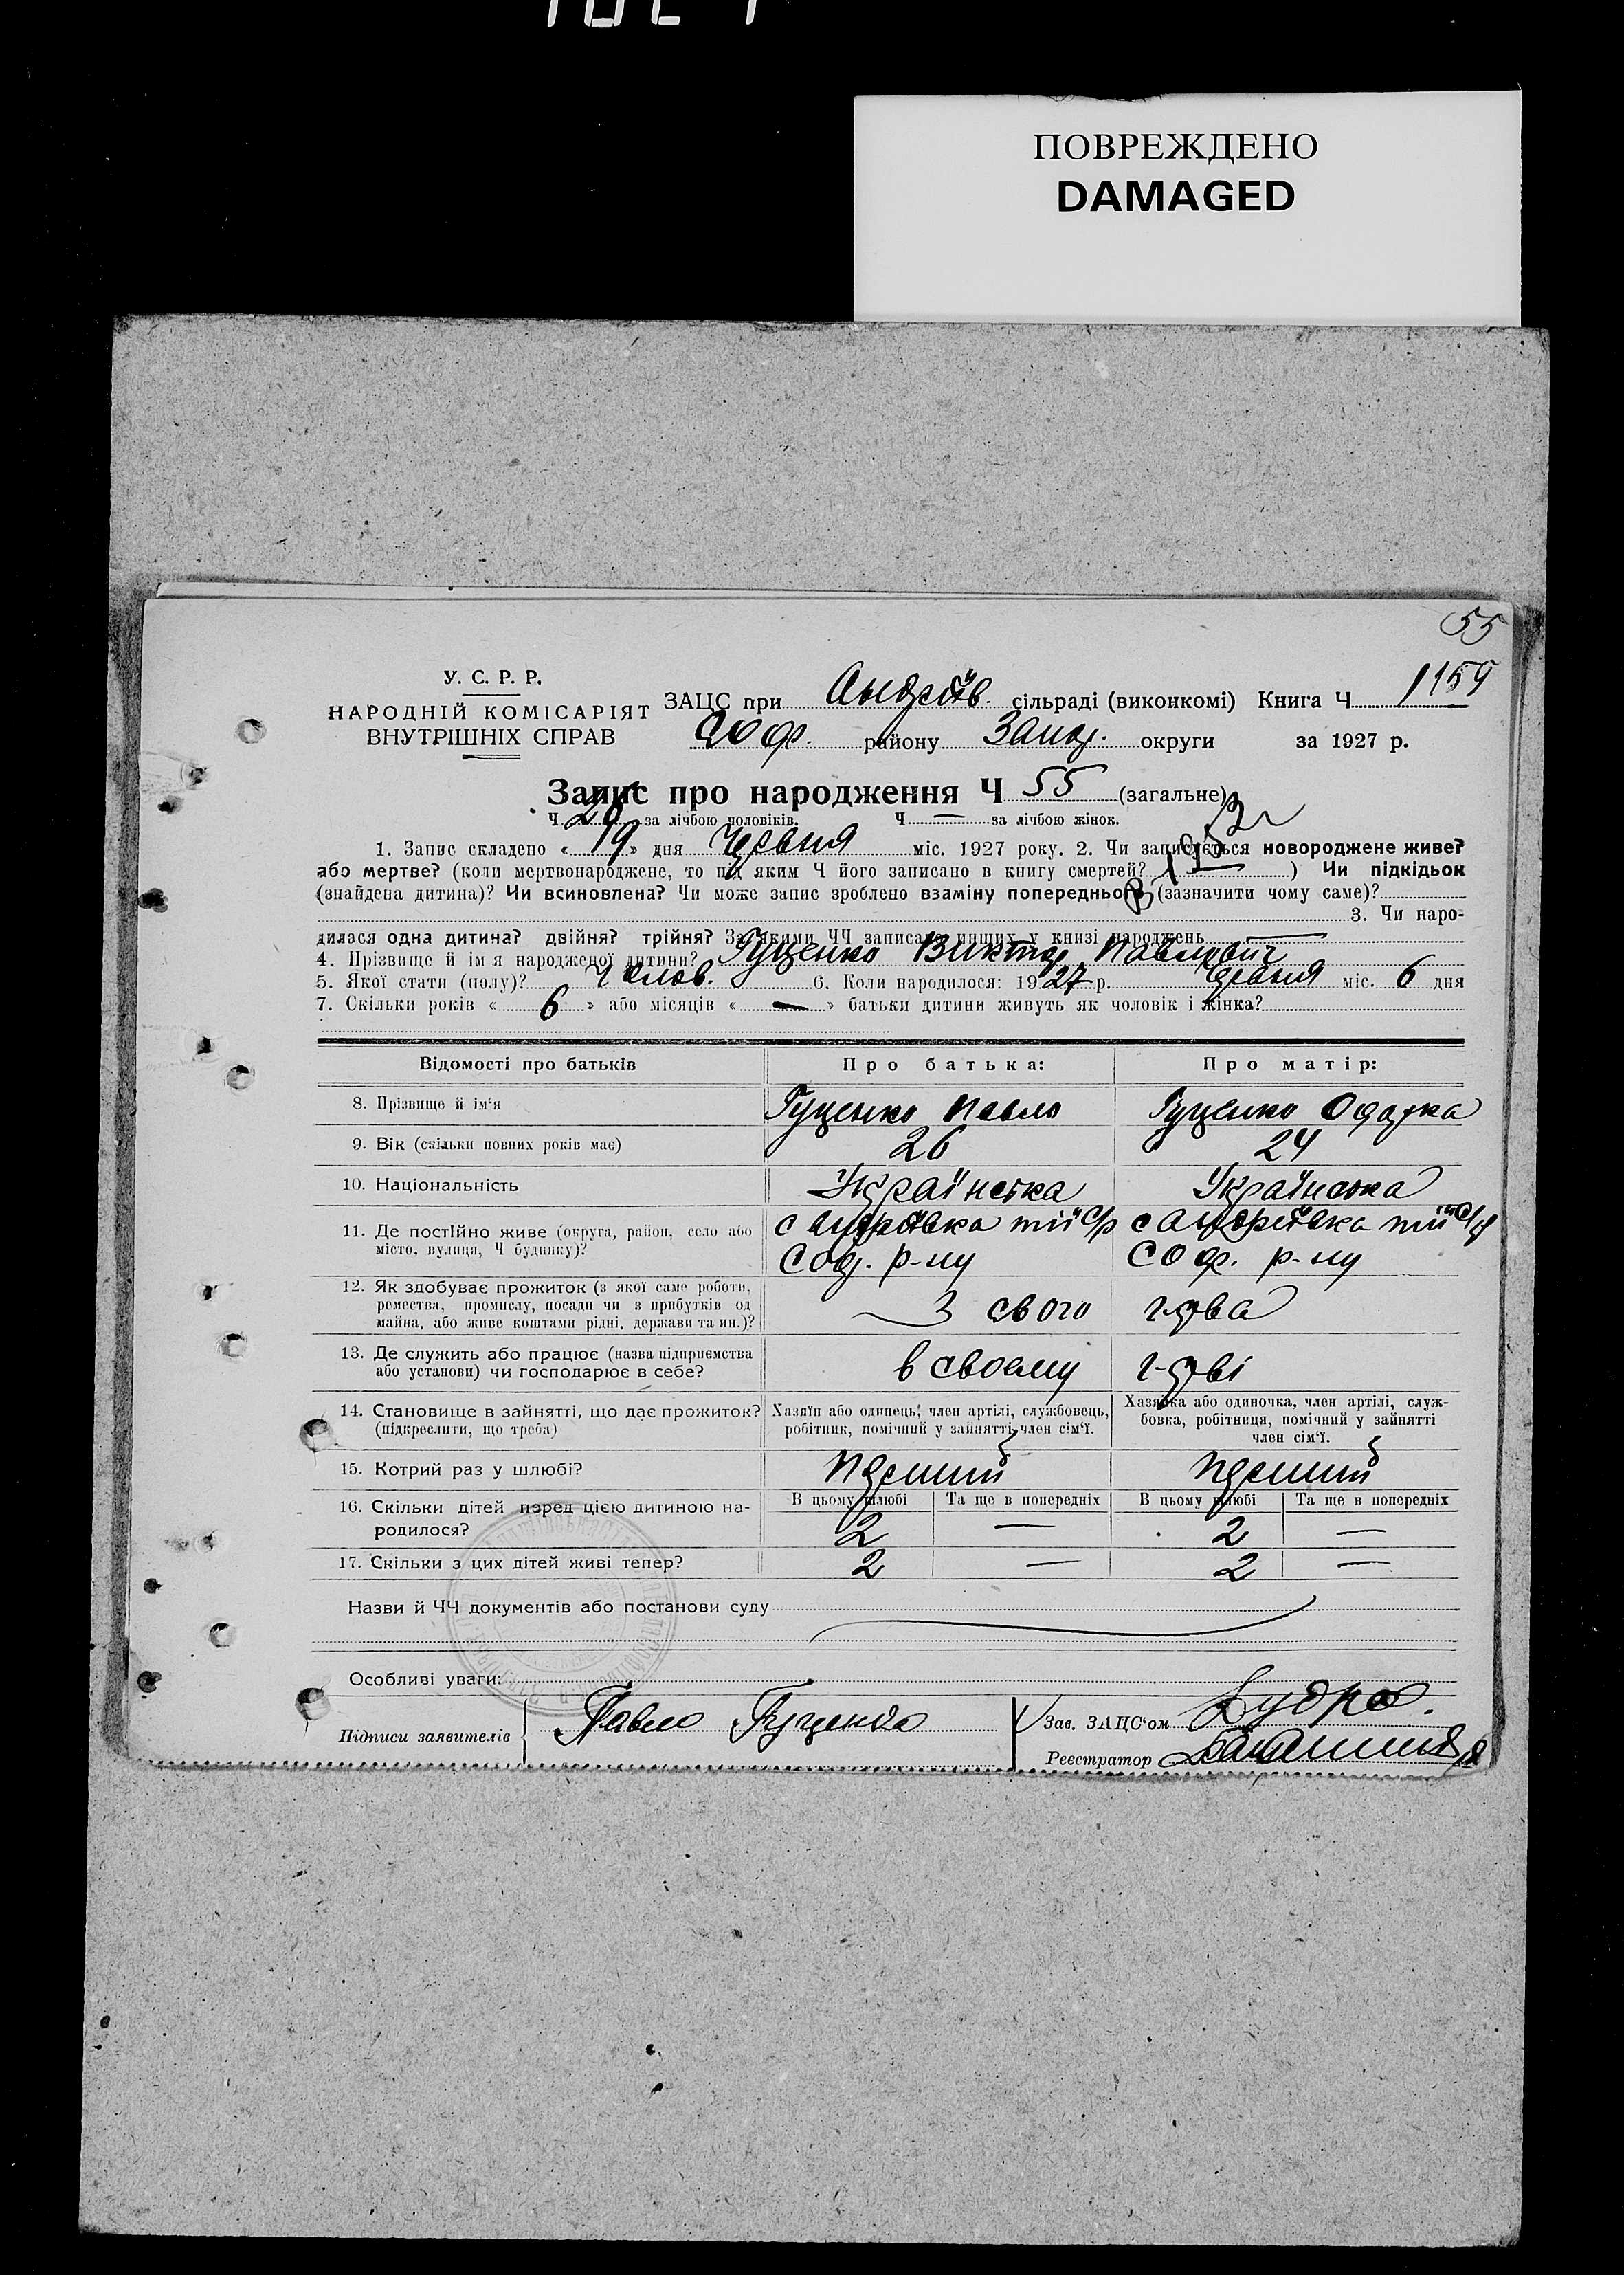 ПОВРЕЖДЕНО
DAMAGED
55
У. С. Р. Р.
НАРОДНІЙ КОМІСАРІЯТ
ВНУТРІШНІХ СПРАВ
ЗАЦС при Андріїв. сільраді (виконкомі) Книга Ч 1159
Соф. району Запор. округи за 1927 р.
Запис про народження Ч 55 (загальне)
Ч за лічбою половіків. Ч — за лічбою жінок.
1. Запис складено « 19 » дня Червня міс. 1927 року. 2. Чи записується новороджене живе?
або мертве? (коли мертвонароджене, то під яким Ч його записано в книгу смертей? ) Чи підкідьок
(знайдена дитина)? Чи всиновлена? Чи може запис зроблено взаміну попереднього (зазначити чому саме)?
3. Чи наро-
дилася одна дитина? двійня? трійня? За якими ЧЧ записано инших у книзі народжень —
4. Прізвище й ім'я народженої дитини? Гуценко Виктор Павлович
5. Якої стати (полу)? Чолов. 6. Коли народилося: 1927 р. Червня міс. 6 дня
7. Скільки років « 6 » або місяців « — » батьки дитини живуть як чоловік і жінка?
Відомості про батьків Про батька: Про матір:
8. Прізвище й ім'я Гуценко Павло Гуценко Одарка
9. Вік (скільки повних років має) 26 24
10. Національність Українська Українська
11. Де постійно живе (округа, район, село або с Андріївка тії с/р с Андріївка тії с/р
місто, вулиця, Ч будинку)? Соф. р-ну Соф. р-ну
12. Як здобуває прожиток (з якої саме роботи,
ремества, промислу, посади чи з прибутків од З свого г-рва
майна, або живе коштами рідні, держави та ин.)?
13. Де служить або працює (назва підприємства в своему г-рві
або установи) чи господарює в себе?
14. Становище в зайнятті, що дає прожиток? Хазяїн або одинець, член артілі, службовець, Хазяйка або одиночка, член артілі, служ-
(підкреслити, що треба) робітник, помічний у зайнятті член сім'ї. бовка, робітниця, помічний у зайнятті
член сім'ї.
15. Котрий раз у шлюбі? перший перший
В цьому шлюбі Та ще в попередніх В цьому шлюбі Та ще в попередніх
16. Скільки дітей перед цією дитиною на-
родилося? 2 — 2 —
17. Скільки з цих дітей живі тепер? 2 — 2 —
Назви й ЧЧ документів або постанови суду
Особливі уваги:
Підписи заявителів Павло Гуценко Зав. ЗАЦС'ом Дудка
Реєстратор